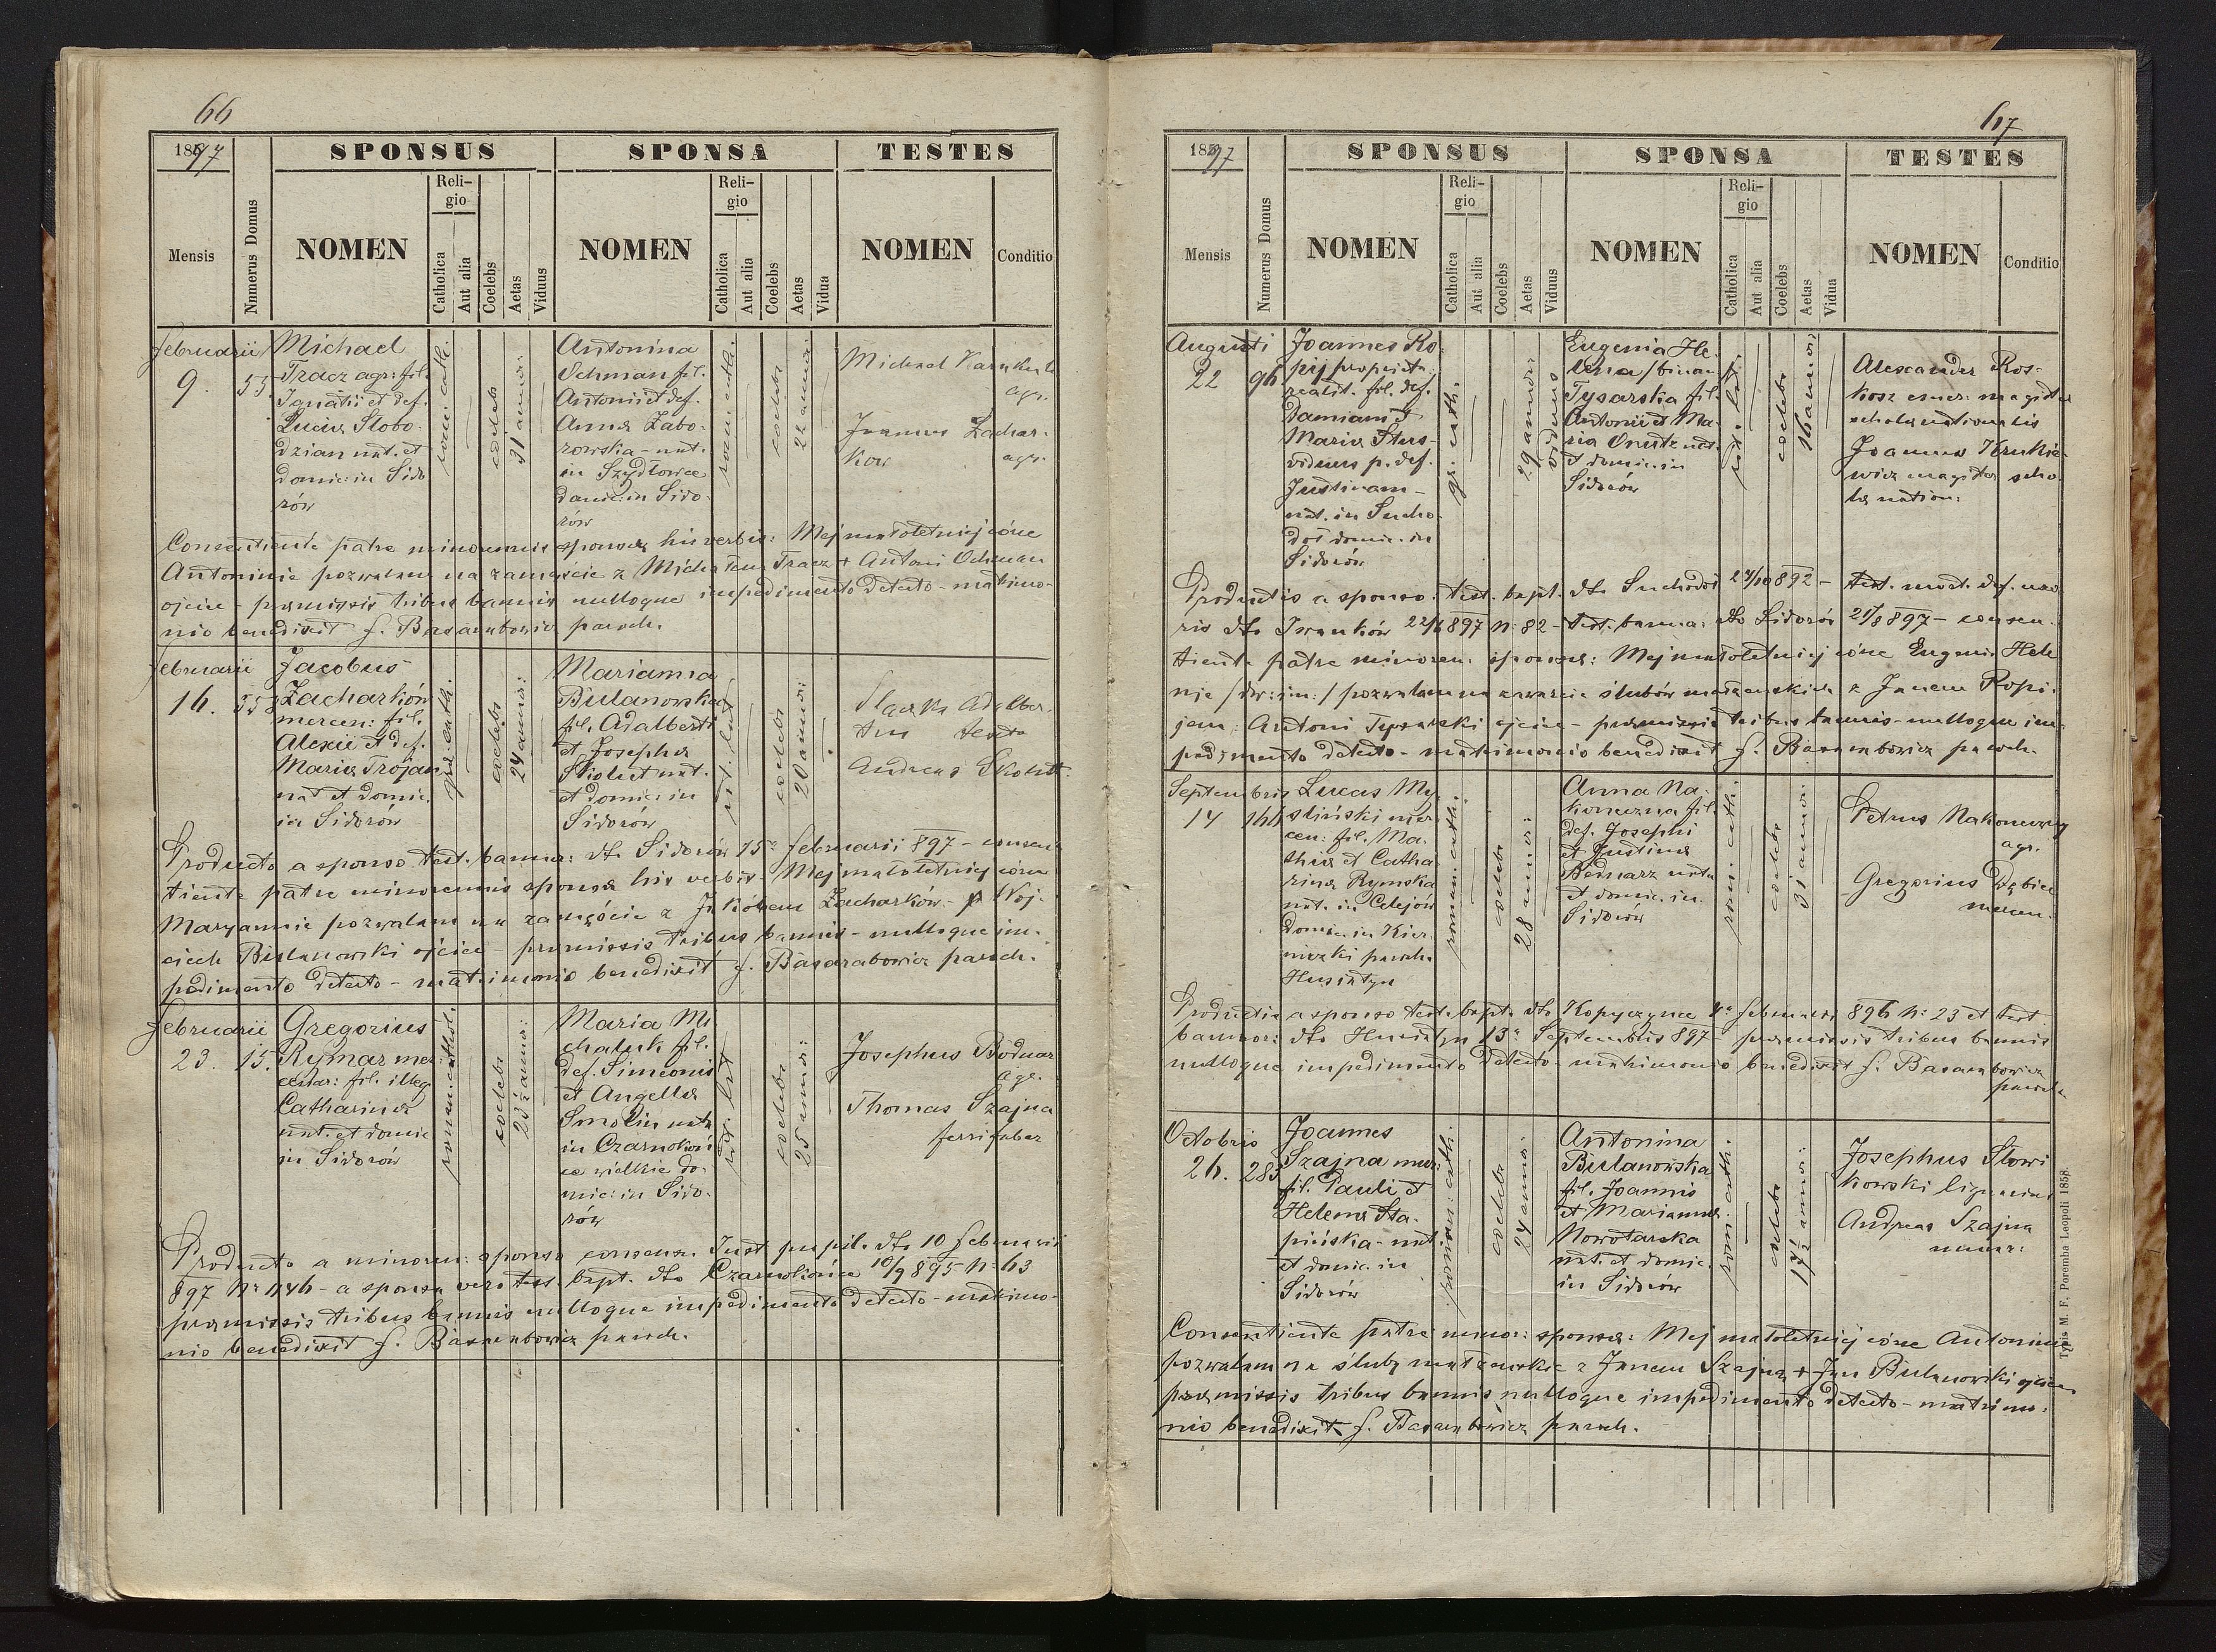 66
1897
SPONSUS
SPONSA
TESTES
Mensis
Numerus Domus
NOMEN
Reli-
gio
Catholica
Aut alia
Coelebs
Aetas
Viduus
NOMEN
Reli-
gio
Catholica
Aut alia
Coelebs
Aetas
Vidua
NOMEN
Conditio
Februarii
9.
53.
Michael
Tracz agr: fil.
Ignatii et def.
Luciæ Słobo-
dzian nat. et
domic: in Sido
rów
rom. cath.
coelebs
31 annor:
Antonina
Ochman fil.
Antonii et def.
Annæ Zabo-
rowska - nat.
in Szydłowce
domic: in Sido-
rów
rom. cath.
coelebs
22 annor:
Michael
agr.
Joannes Zachar-
kow agr.
Consentiente patre minorennis sponsæ his verbis: Mej małoletniej córce
Antoninie pozwalam na zamęście z Michałem Tracz + Antoni Ochman
ojciec - præmissis tribus bannis nulloque impedimento detecto - matrimo-
nio benedixit J. Basarabowicz paroch.
Februarii
16.
Jacobus
Zacharków
mercen: fil.
Alexii et def.
Mariæ Trojan
nat et domic.
in Sidorów
gr. cath.
coelebs
24 annor:
Marianna
Bulanowska
fil. Adalberti
et Josephæ
nat.
et domic. in
Sidorów
rit. lat.
coelebs
20 annor:
Adalber-
tus
Andreas
Producto a sponso test. banno: dto Sidorów 15a Februarii 897 - consen
tiente patre minorennis sponsæ his verbis - Mej małoletniej córce
Maryannie pozwalam na zamęście z Jakóbem Zacharków - + Woj-
ciech Bulanowski ojciec - præmissis tribus bannis - nulloque im-
pedimento detecto - matrimonio benedixit J. Basarabowicz paroch.
Februarii
23.
15.
Gregorius
Rymar mer-
cenar: fil. illeg
Catharinæ
nat. et domic
in Sidorów
roman. cathol.
coelebs
23½ annor:
Maria Mi
chaluk fil.
def. Simeonis
et Angellæ
Smolin nata
in Czarnokoń
ce wielkie do-
mic: in Sido-
rów
rit. lat
coelebs
25 annor:
Josephus Bodnar
agr.
Thomas Szajna
ferrifaber
Producto a minoren: sponso consensu Jud pupil. dto 10 Februarii
897 Nr 1146 - a sponsa vero test. bapt. dto Czarnokońce 10/9 895 N. 63
præmissis tribus bannis nulloque impedimento detecto - matrimo-
nio benedixit J. Basarabowicz paroch.
67
1897
SPONSUS
SPONSA
TESTES
Mensis
Numerus Domus
NOMEN
Reli-
gio
Catholica
Aut alia
Coelebs
Aetas
Viduus
NOMEN
Reli-
gio
Catholica
Aut alia
Coelebs
Aetas
Vidua
NOMEN
Conditio
Augusti
22
96
Joannes Ro-
pij propriet.
realit. fil. def.
Damiani et
Mariæ
viduus p. def.
Justinam -
nat. in Sucho-
dol domic. in
Sidorów
gr. cath.
29 annor:
viduus
Eugenia He-
lena /binom
Tysarska fil.
Antonii et Ma-
ria nat.
et domic. in
Sidorów
rit. lat.
coelebs
16 annor:
Alexander Ros-
kosz emer: magister
scholæ nationalis
Joannes Krukie-
wicz magister scho-
læ nation:
Productis a sponso: test. bapt. dto Suchodół 24/10 892 - test. mort. def. uxo
ris dto Iwanków 22/6 897 N: 82 - test. banno: dto Sidorów 21/8 897 - consen-
tiente patre minoren: sponsæ: Mej małoletniej córce Eugenii Hele
nie /dw: im:/ pozwalam na zawarcie ślubów małżenskich z Janem Ropi-
jem: Antoni Tysarski ojciec - præmissis tribus bannis - nulloque im-
pedimento detecto - matrimonio benedixit J. Basarabowicz paroch.
Septembris
14
166
Lucas My-
sliński mer-
cen: fil. Ma-
thiæ et Catha
rinæ Rymska
nat. in Celejów
domic. in Kier-
niczki paroch.
Husiatyn
roman. cath.
coelebs
28 annor:
Anna Na-
koneczna fil.
def. Josephi
et Justinæ
Bednarz nata
et domic. in
Sidorów
rom. cath.
coelebs
31 annor:
Petrus Nakoneczny
agr.
Gregorius
mercen.
Productis a sponso test. bapt. dto Kopyczynce 4a Februarii 896 N: 23 et test
bannor: dto Husiatyn 13a Septembris 897 - præmissis tribus bannis
nulloque impedimento detecto - matrimonio benedixit J. Basarabowicz
paroch.
Octobris
26.
283
Joannes
Szajna mur:
fil. Pauli et
Helenæ Sta-
pińska - nat.
et domic. in
Sidorów
roman: cath.
coelebs
24 annor:
Antonina
Bulanowska
fil. Joannis
et Mariannæ
Nowotarska
nat. et domic.
in Sidorów
rom. cath.
coelebs
17½ annor:
Josephus Słowi
kowski lignarius
Andreas Szajna
murar:
Consentiente patre minor: sponsæ: Mej małoletniej córce Antoninie
pozwalam na śluby małżenskie z Janem Szajna + Jan Bulanowski ojciec
præmissis tribus bannis nulloque impedimento detecto - matrimo-
nio benedixit J. Basarabowicz paroch.
Typis M. F. Poremba Leopoli 1858.